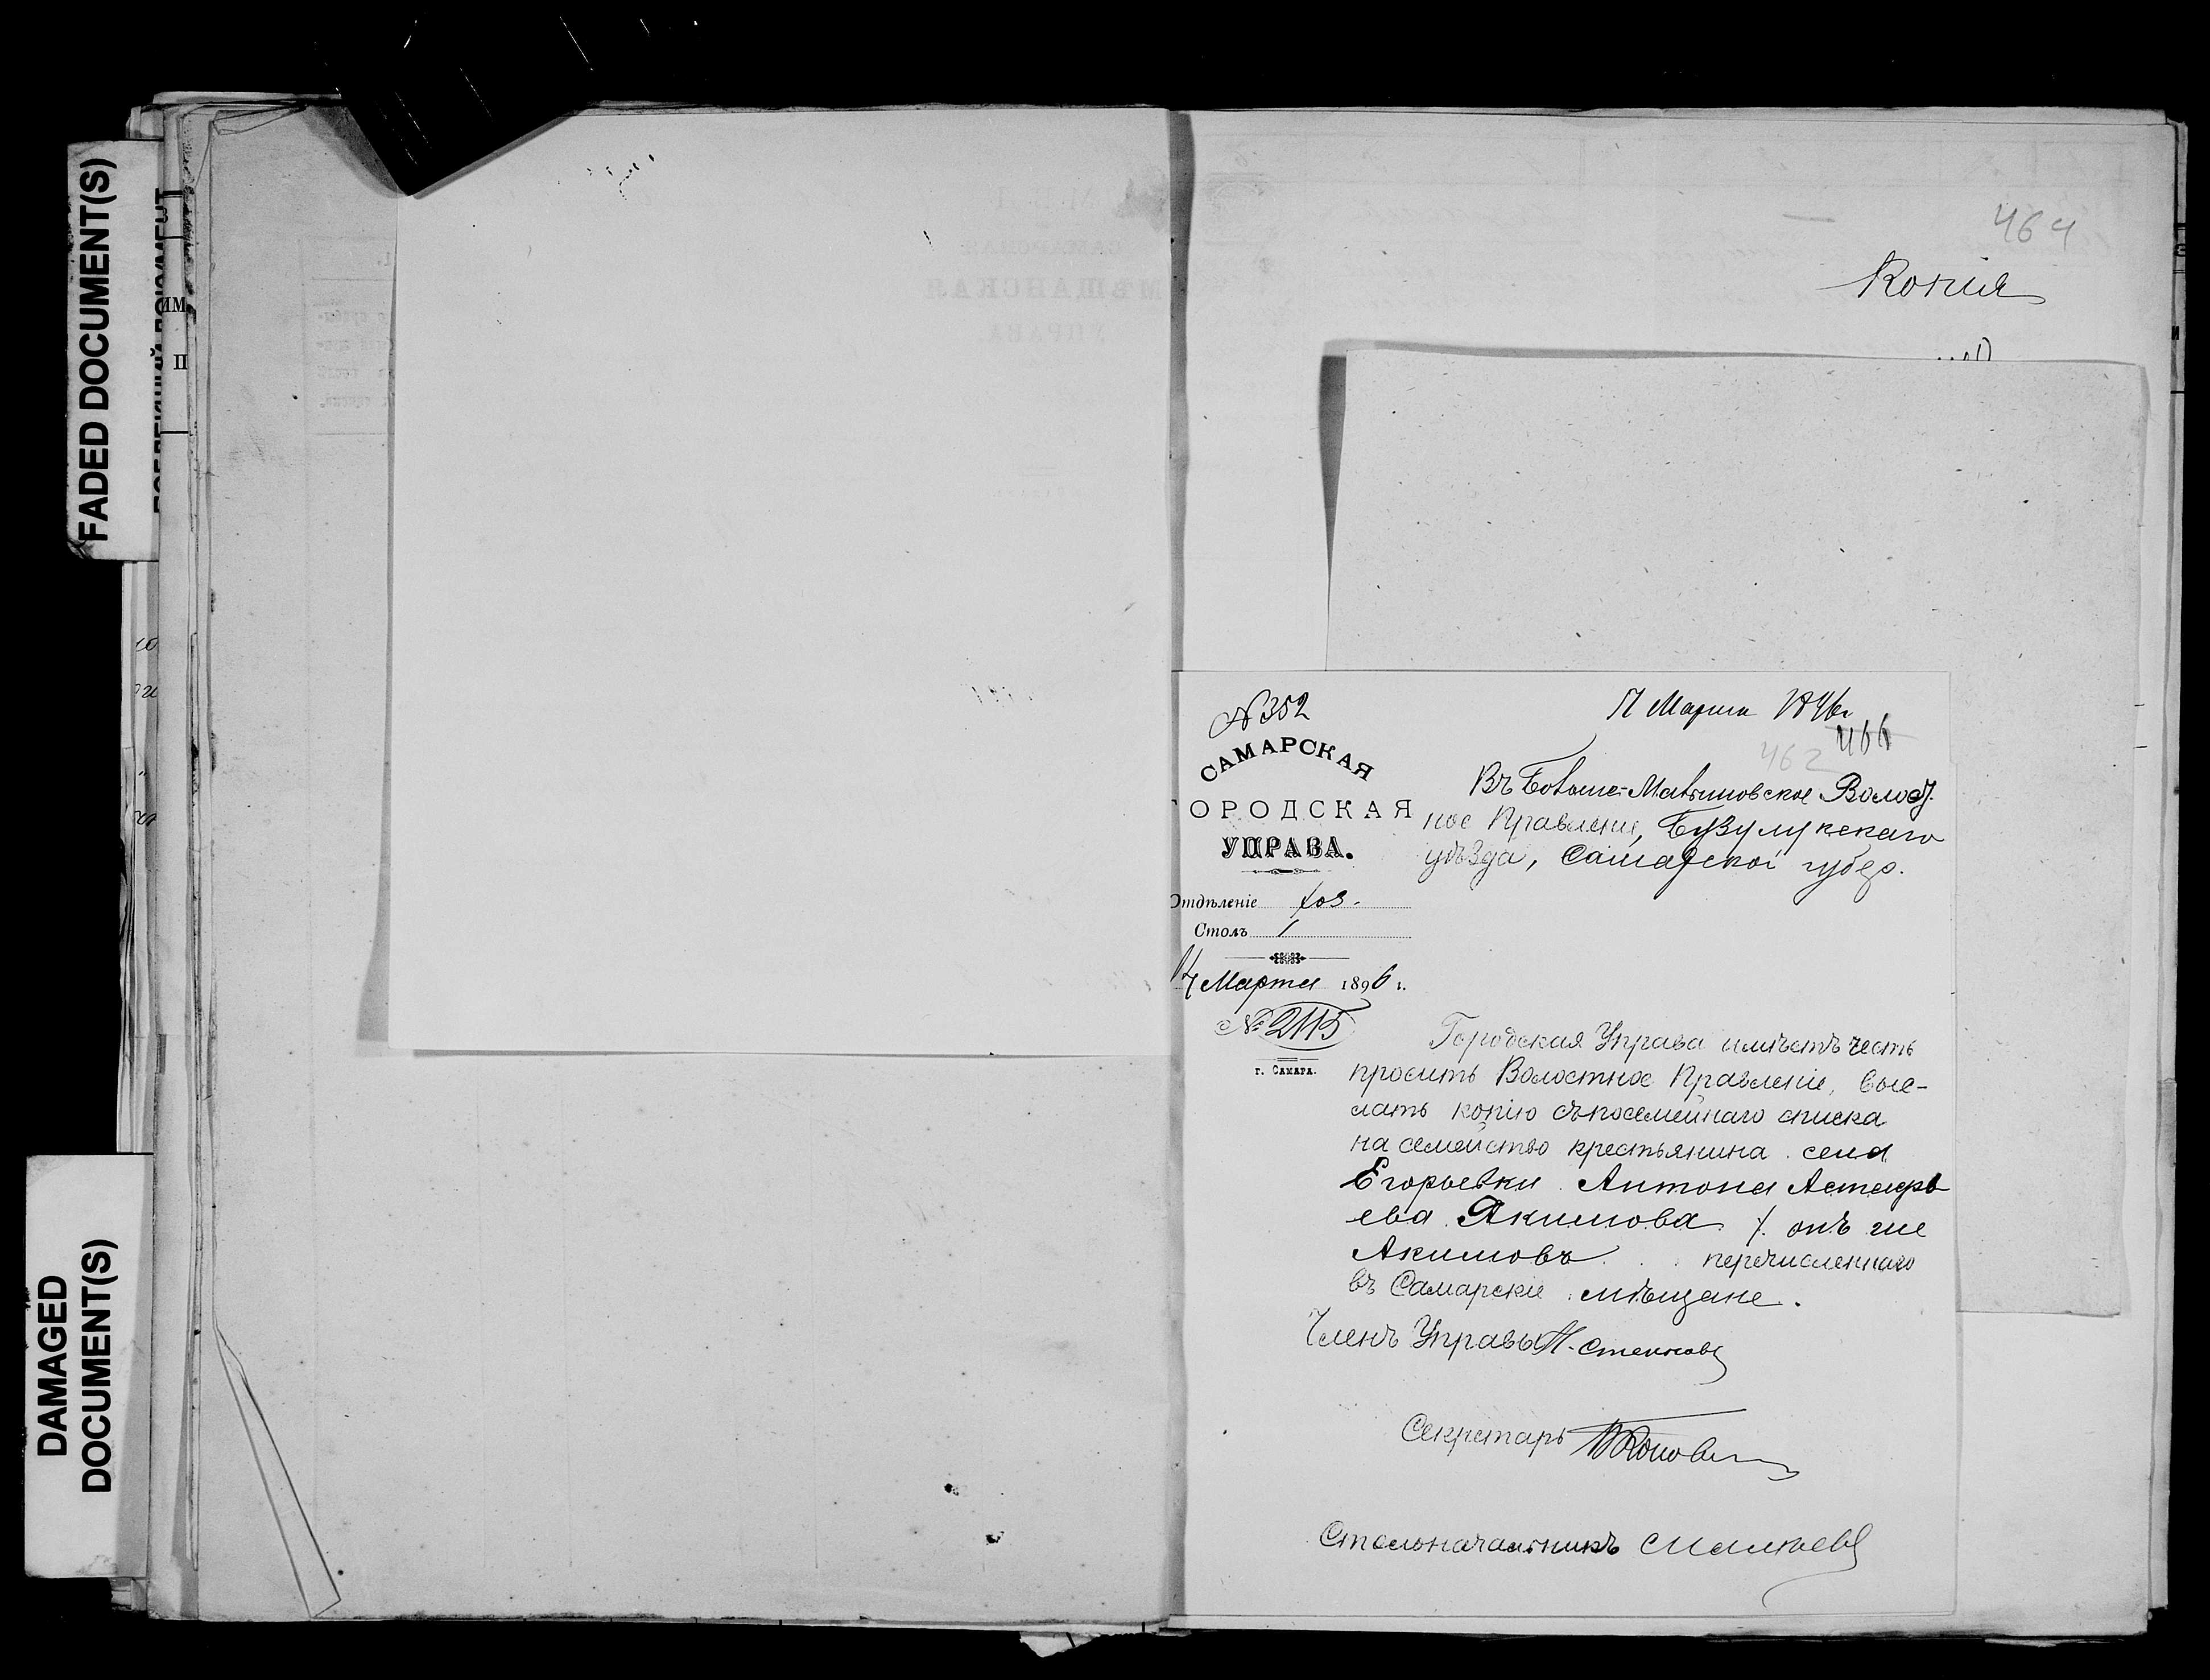 FADED DOCUMENT(S)
DAMAGED
DOCUMENT(S)
464
Копія
№ 352
17 Марта 1896 г
466
462
САМАРСКАЯ
ГОРОДСКАЯ
УПРАВА.
Отдѣленіе хоз.
Столъ 1
14 Марта 1896 г.
№ 2115
г. САМАРА.
Въ Больше-Малышевское Волост.
ное Правленіе, Бузулукскаго
уѣзда, Самарской губер.
Городская Управа имѣетъ честь
просить Волостное Правленіе, выс-
лать копію съ посемейнаго списка
на семейство крестьянина села
Егорьевки Антона Астафь
ева Якимова /. онъ же
Акимовъ перечисленнаго
въ Самарскіе мѣщане.
Членъ Управы
Секретарь
Столоначальникъ